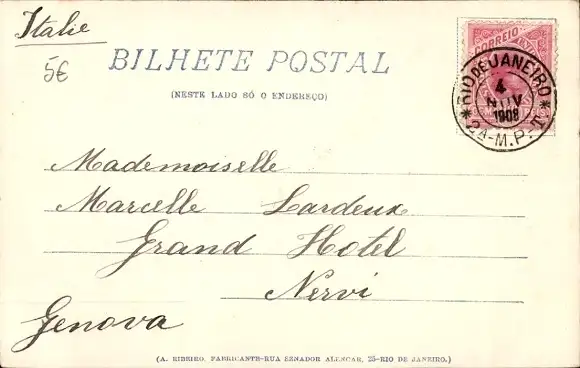 Italie
5€
BILHETE POSTAL
(NESTE LADO SÓ O ENDEREÇO)
CORREIO
RIO DE JANEIRO
4
NOV
1908
2A-M.P-T
Mademoiselle
Marcelle Lardeux
Grand Hotel
Nervi
Genova
(A. RIBEIRO, FABRICANTE-RUA SENADOR ALENCAR, 25-RIO DE JANEIRO.)